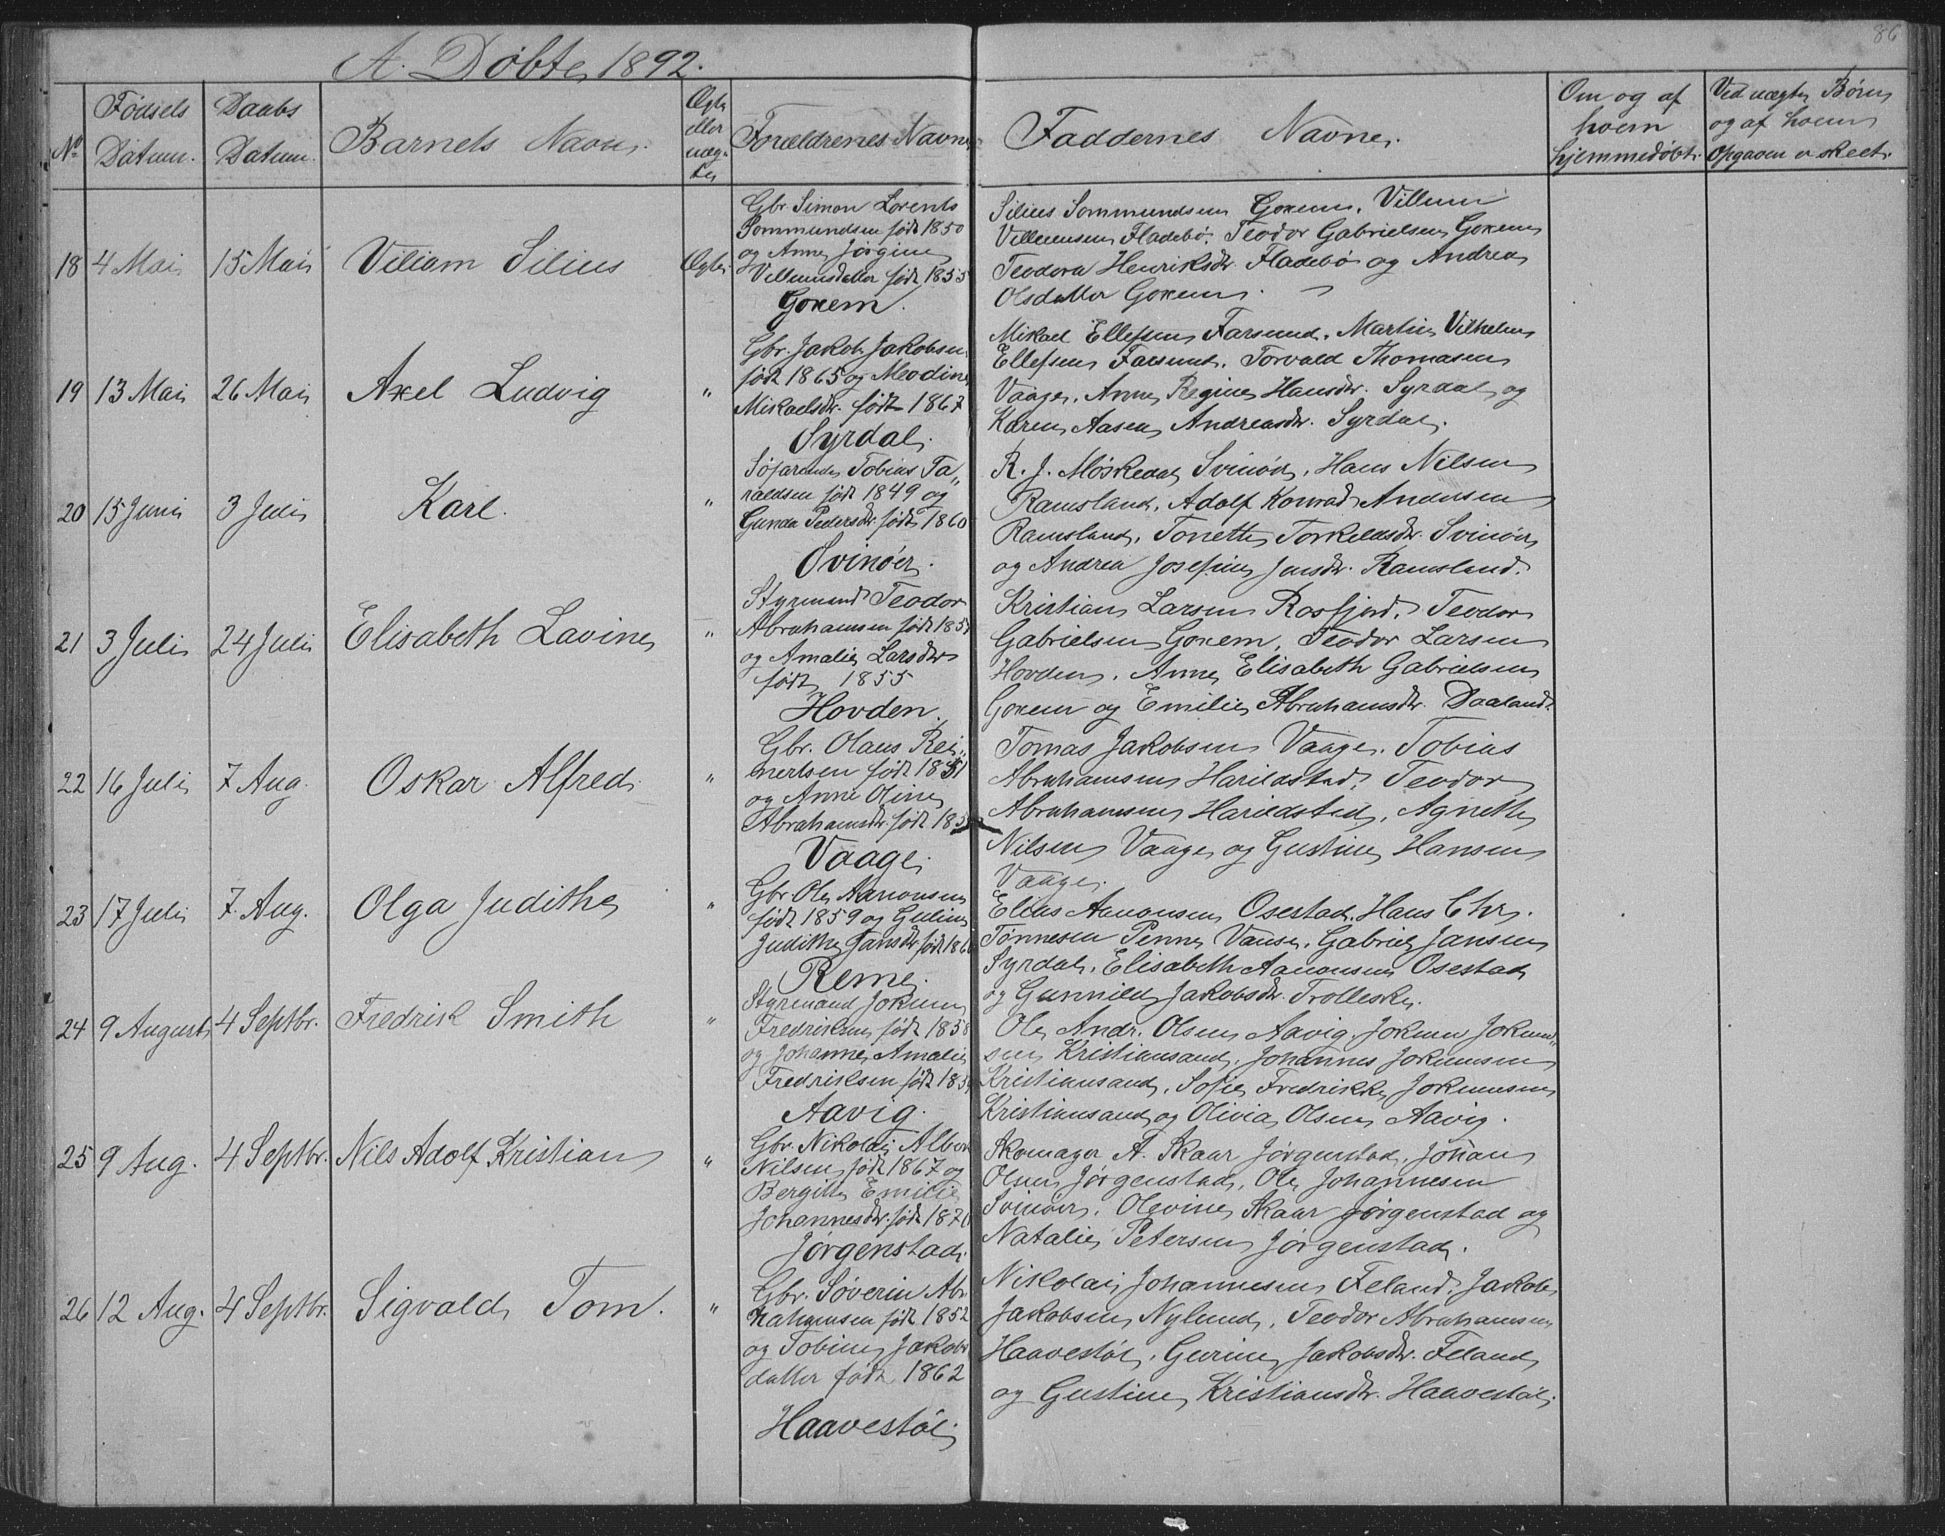 86
A. Døbte 1892.
No
Fødsels Datum.
Daabs Datum.
Barnets Navn.
Ægte eller uægte
Forældrenes Navne
Faddernes Navne.
Om og af hvem hjemmedøbt.
Ved uægte Børn og af hvem Opgaven er skeet.
18 4 Mai 15 Mai Viliam Silius Ægte
Gbr. Simon Lorents
Sommundsen født 1850
og Anne Jørgine
Villumsdatter født 1855
Goxem.
Silius Sommundsen Goxem, Villum
Villumsen Fladebø, Teodor Gabrielsen Goxem
Teodora Henriksdtr. Fladebø og Andrea
Olsdatter Goxem.
19 13 Mai 26 Mai Axel Ludvig "
Gbr. Jakob Jakobsen
født 1865 og Meodine
Mikaelsdr. født 1867
Syrdal.
Mikael Ellefsen Farsund, Martin Vilhelm
Ellefsen Farsund, Torvald Thomasen
Vaage, Anne Regine Hansdtr. Syrdal og
Karen Aasen Andreasdtr. Syrdal.
20 15 Juni 3 Juli Karl. "
Søfarende Tobias Ta„
raldsen født 1849 og
Gunda Pedersdtr. født 1860
Svinøer.
R. J. Møskedal Svinør, Hans Nilsen
Ramsland, Adolf Konrad Andersen
Ramsland, Tonette Torkelsdtr. Svinør
og Andrea Josefine Jensdtr. Ramsland.
21 3 Juli 24 Juli Elisabeth Lavine "
Styrmand Teodor
Abrahamsen født 185
og Amalie Larsdtr
født 1855
Hovden.
Kristian Larsen Rosfjord, Teodor
Gabrielsen Goxem, Teodor Larsen
Hovden, Anne Elisabeth Gabrielsen
Goxem og Emilie Abrahamsdtr. Daaland.
22 16 Juli 7 Aug. Oskar Alfred. "
Gbr. Olaus Rei„
nertsen født 1851
og Anne Oline
Abrahamsdtr. født 185
Vaage.
Tomas Jakobsen Vaage, Tobias
Abrahamsen Harildstad, Teodor
Abrahamsen Harildstad, Agnethe
Nilsen Vaage og Gustine Hansen
Vaage.
23 17 Juli 7. Aug. Olga Judithe "
Gbr. Ole Aanonsen
født 1859 og Guline
Judithe Jansdtr født 186
Reme.
Elias Aanonsen Osestad, Hans Chr.
Tønnesen Penne Vanse, Gabriel Jansen
Syrdal, Elisabeth Aanonsen Osestad
og Gunnild Jakobsdtr. Trolleske.
24 9 August 4 Septbr. Fredrik Smith "
Styrmand Jokum
Fredriksen født 1858
og Johanne Amalie
Fredriksen født 185
Aavig.
Ole Andr. Olsen Aavig, Jokum Jokum„
sen Kristiansand, Johannes Jokumsen
Kristiansand, Sofie Fredrikke Jokumsen
Kristiansand og Olivia Olsen Aavig.
25 9 Aug. 4 Septbr. Nils Adolf Kristian "
Gbr. Nikolai Albert
Nilsen født 1867 og
Bergitte Emilie
Johannesdtr. født 187
Jørgenstad.
Skomager A. Skaar Jørgenstad, Johan
Olsen Jørgenstad, Ole Johannesen
Svinør, Olevine Skaar Jørgenstad og
Natalie Petersen Jørgenstad.
26 12 Aug. 4 Septbr. Sigvald Tom. "
Gbr. Søverin Abr
hahamsen født 1852
og Tobine Jakobs
datter født 1862
Haavestøl.
Nikolai Johannesen Feland, Jakob
Jakobsen Nylund, Teodor Abrahamsen
Haavestøl, Gurine Jakobsdtr. Feland
og Gustine Kristiansdtr. Haavestøl.